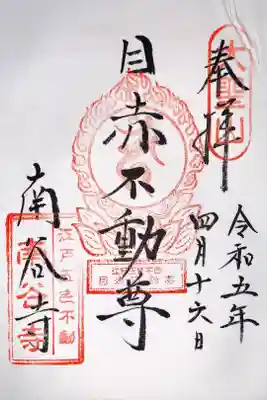 奉拝
令和五年
四月十六日
目赤不動尊
南谷寺
江戸五色不動
南谷寺